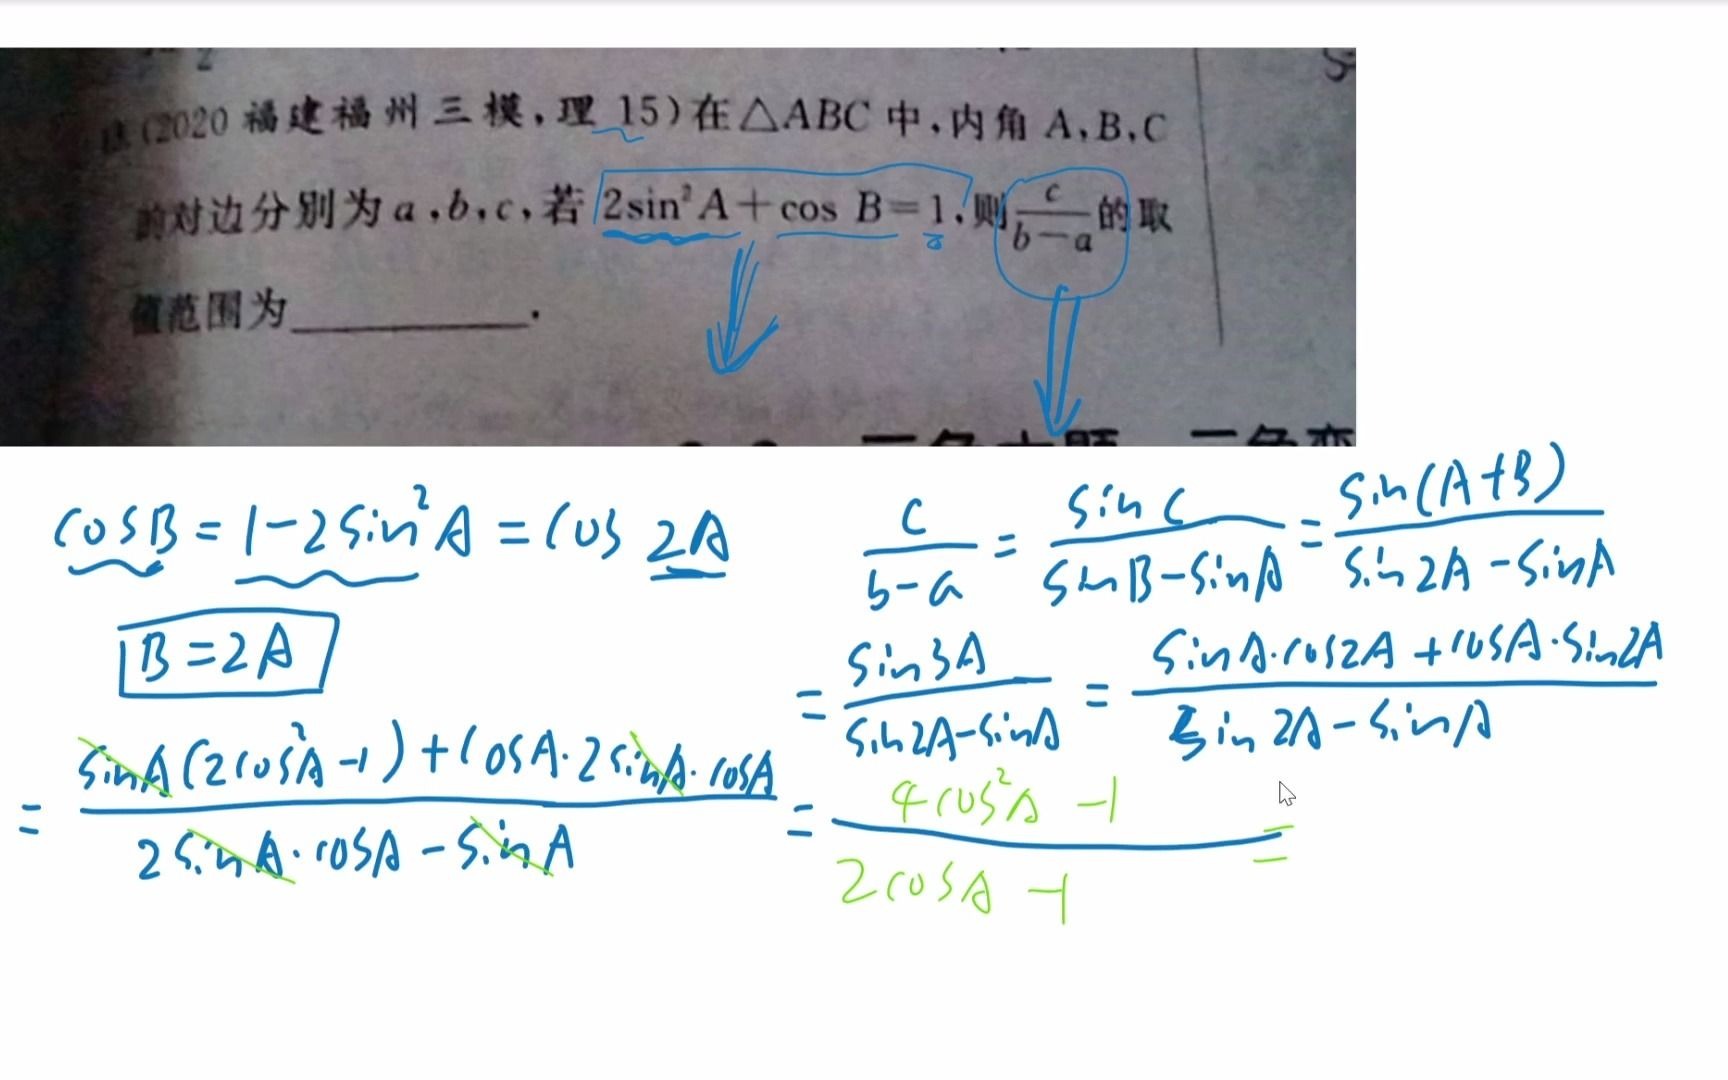 (2020福建福州三模,理 15)在△ABC 中,内角 A,B,C
的对边分别为 a,b,c,若 2sin²A+cos B=1,则 c/(b-a) 的取
值范围为__________.
cosB = 1-2sin²A = cos 2A
B=2A
c/(b-a) = sinC/(sinB-sinA) = sin(A+B)/(sin2A-sinA)
= sin3A/(sin2A-sinA) = (sinA·cos2A+cosA·sin2A)/(sin2A-sinA)
= (sinA(2cos²A-1)+cosA·2sinA·cosA)/(2sinA·cosA-sinA) = (4cos²A-1)/(2cosA-1) =